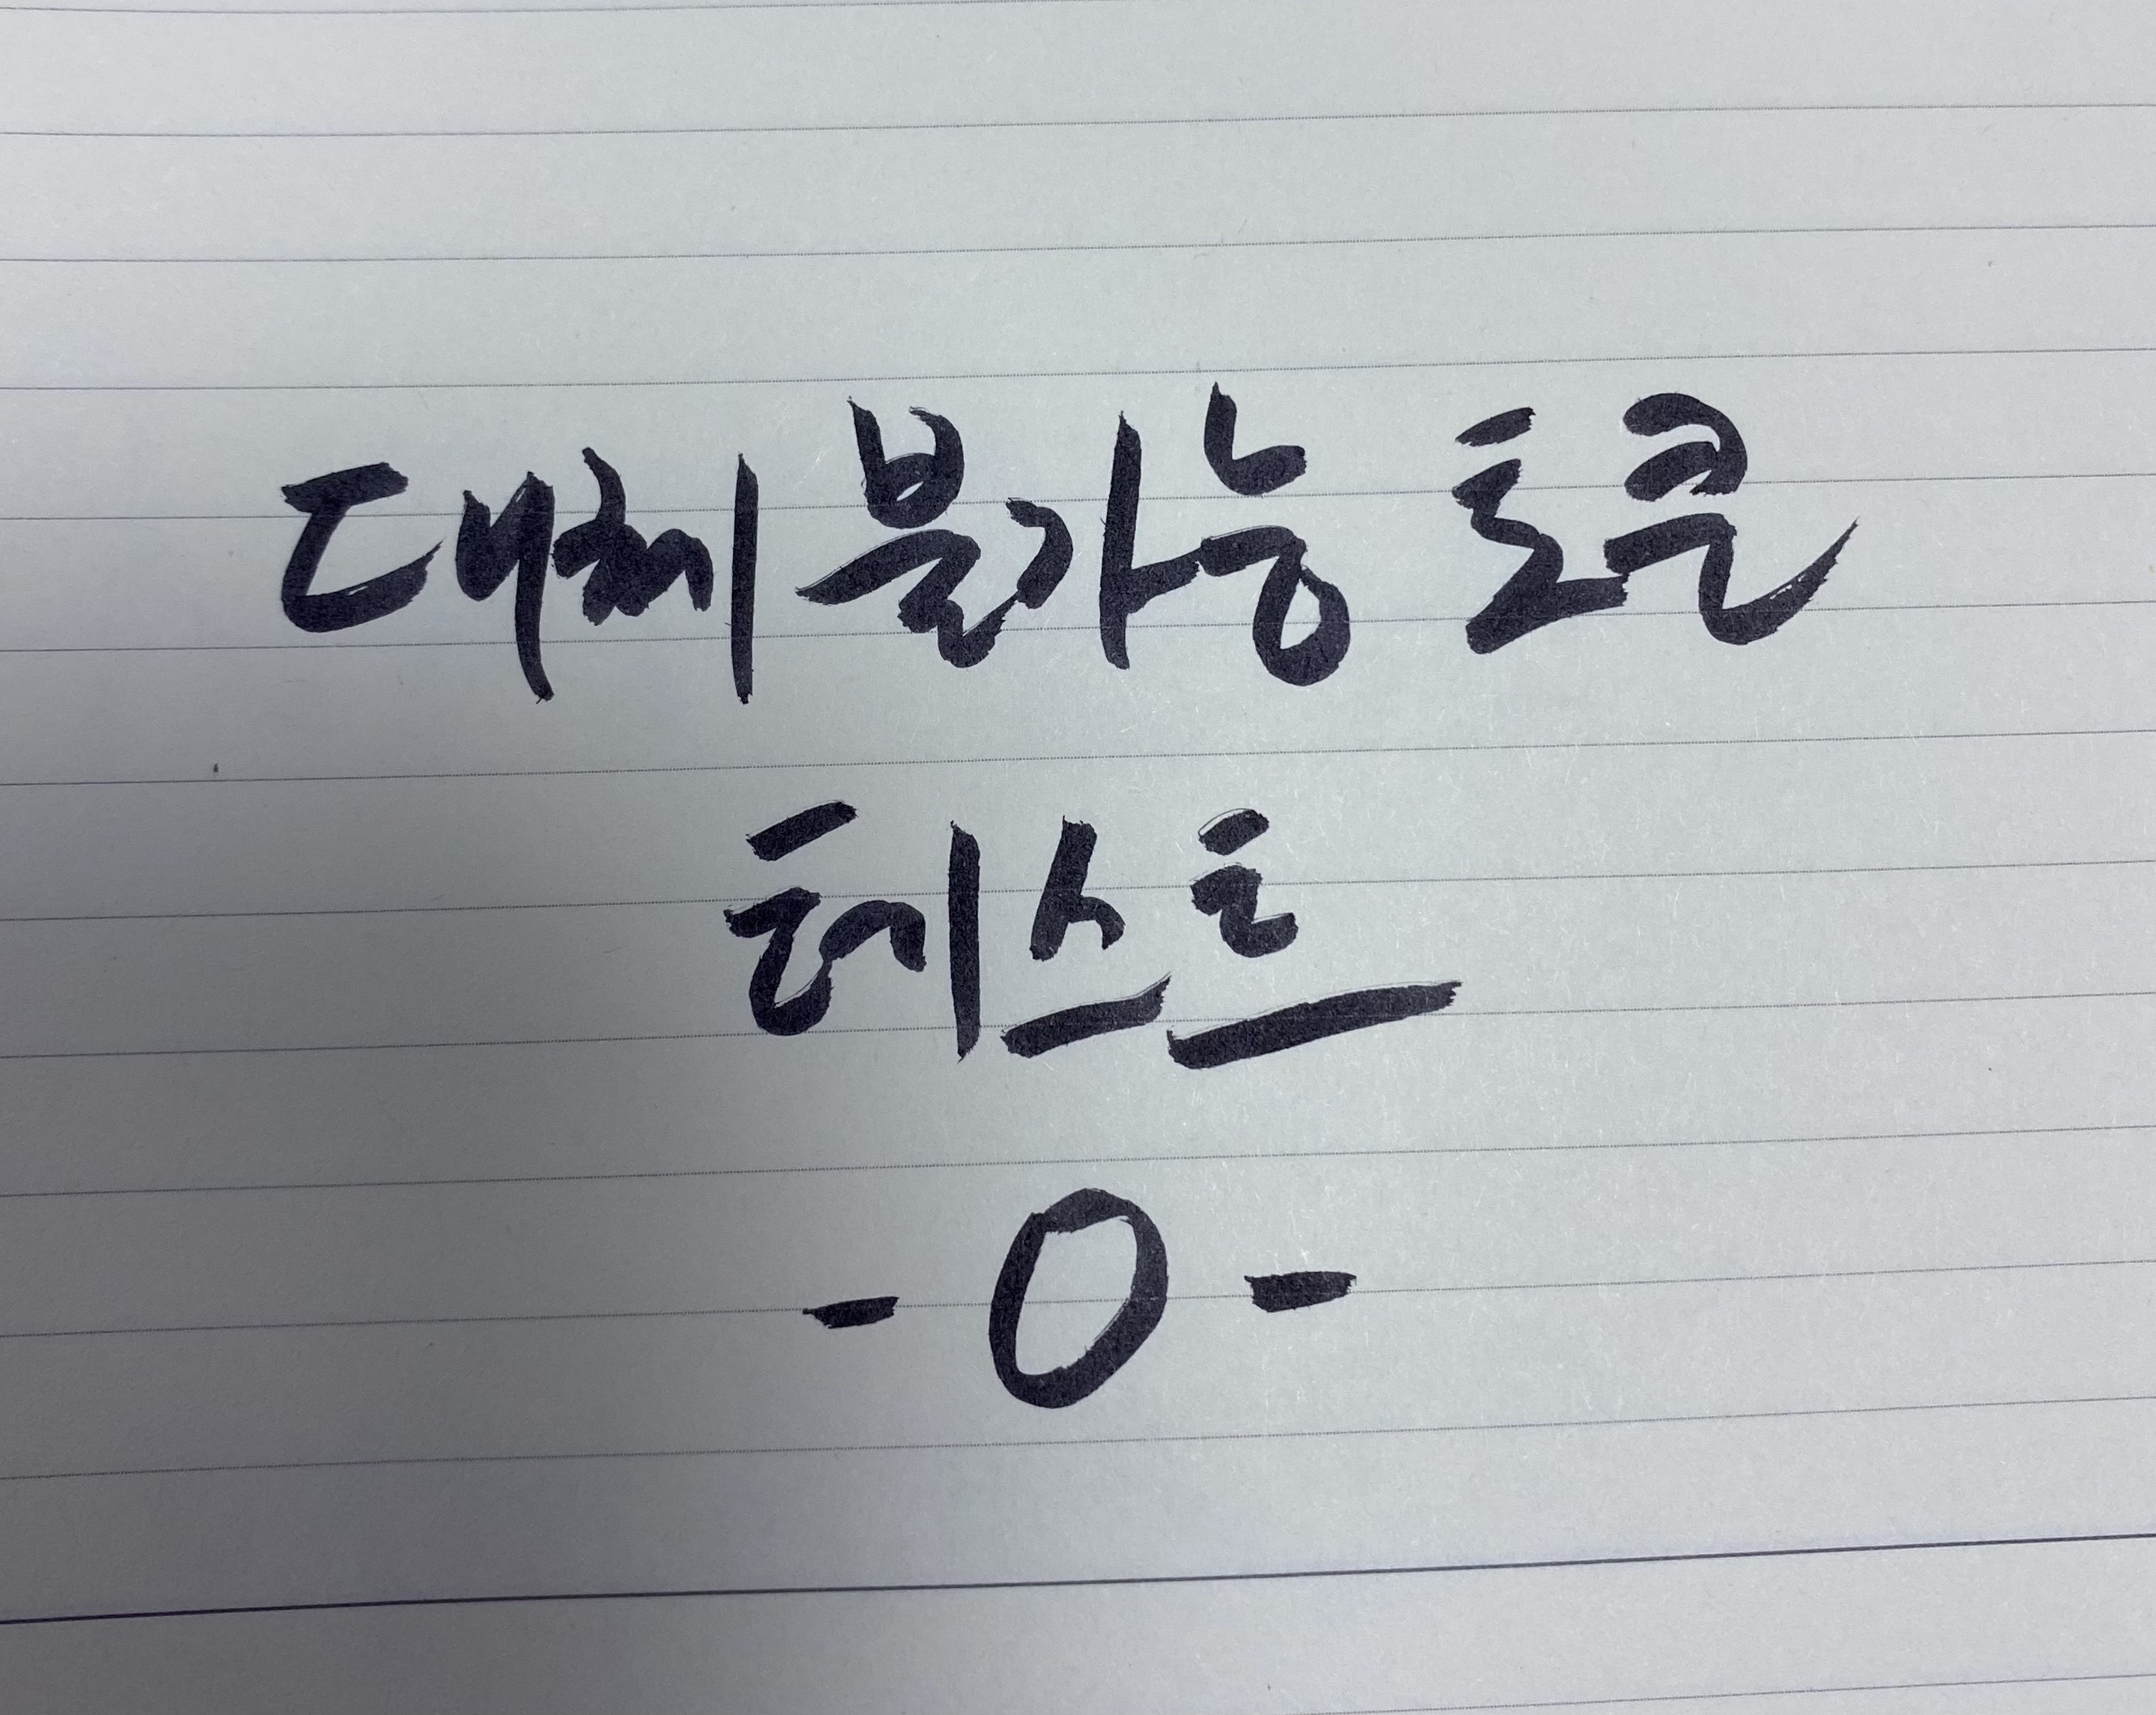 대체불가능 토큰
테스트
- 0 -